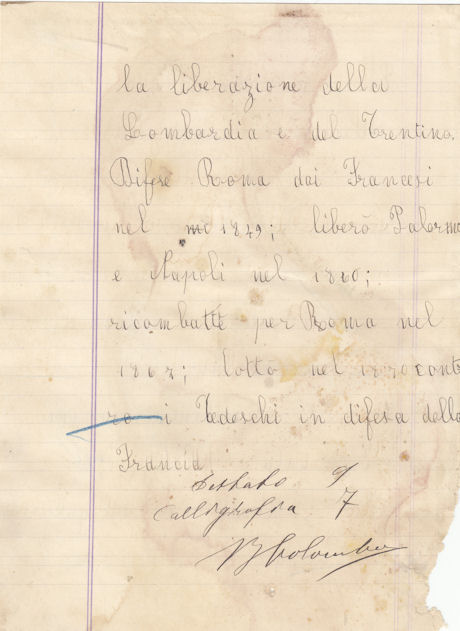 la liberazione della
Lombardia e del Trentino.
Difese Roma dai Francesi
nel 1849; liberò Palermo
e Napoli nel 1860;
ricombattè per Roma nel
1867; lotto nel 1870 cont
ro i Tedeschi in difesa della
Francia
Dettato 9
Calligrafia 7
Colombo